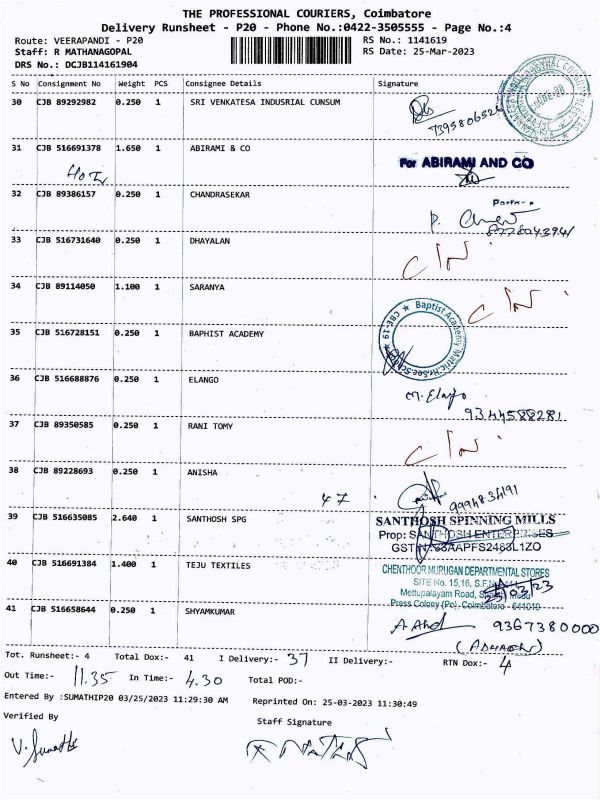 THE PROFESSIONAL COURIERS, Coimbatore
Delivery Runsheet - P20 - Phone No.:0422-3505555 - Page No.:4
Route: VEERAPANDI - P20 RS No.: 1141619
Staff: R MATHANAGOPAL RS Date: 25-Mar-2023
DRS No.: DCJB114161904
S No Consignment No Weight PCS Consignee Details Signature
30 CJB 89292982 0.250 1 SRI VENKATESA INDUSRIAL CUNSUM
31 CJB 516691378 1.650 1 ABIRAMI & CO
For ABIRAMI AND CO
32 CJB 89386157 0.250 1 CHANDRASEKAR
33 CJB 516731640 0.250 1 DHAYALAN
34 CJB 89114050 1.100 1 SARANYA
35 CJB 516728151 0.250 1 BAPHIST ACADEMY
Baptist Academy Matric.Hr.Sec.Sch CBE-19
36 CJB 516688876 0.250 1 ELANGO
M. Elango
9344588281
37 CJB 89350585 0.250 1 RANI TOMY
38 CJB 89228693 0.250 1 ANISHA
47
39 CJB 516635085 2.640 1 SANTHOSH SPG
SANTHOSH SPINNING MILLS
Prop: SANTHOSH ENTERPRISES
40 CJB 516691384 1.400 1 TEJU TEXTILES
CHENTHOOR MURUGAN DEPARTMENTAL STORES
SITE No. 15,16,
Mettupalayam Road,
Press Colony (Po). Coimbatore - 641019
41 CJB 516658644 0.250 1 SHYAMKUMAR
9367380000
Tot. Runsheet:- 4 Total Dox:- 41 I Delivery:- 37 II Delivery:- RTN Dox:- 4
Out Time:- 11.35 In Time:- 4.30 Total POD:-
Entered By :SUMATHIP20 03/25/2023 11:29:30 AM Reprinted On: 25-03-2023 11:30:49
Verified By Staff Signature